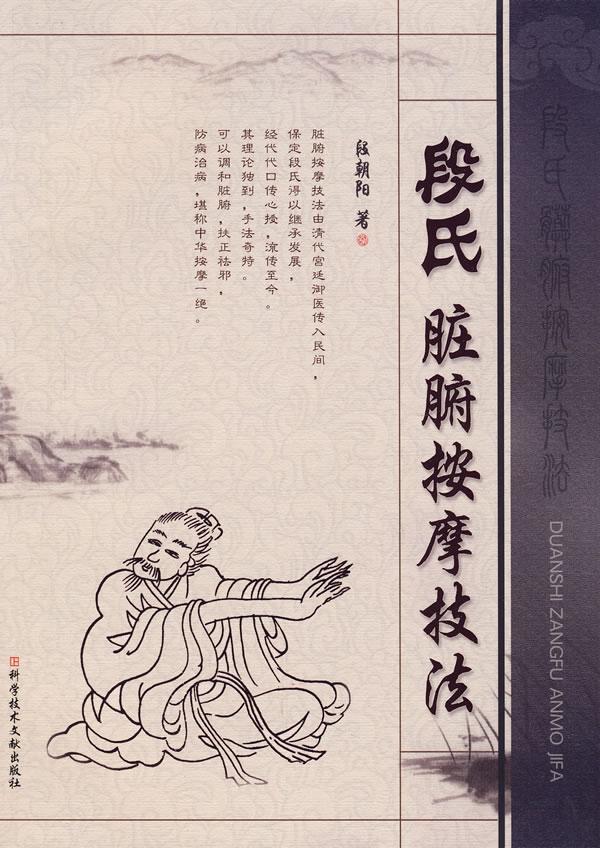 段氏脏腑按摩技法
段朝阳 著
脏腑按摩技法由清代宫廷御医传入民间，
保定段氏得以继承发展，
经代代口传心授，流传至今。
其理论独到，手法奇特。
可以调和脏腑，扶正祛邪，
防病治病，堪称中华按摩一绝。
段氏脏腑按摩技法
DUANSHI ZANGFU ANMO JIFA
科学技术文献出版社